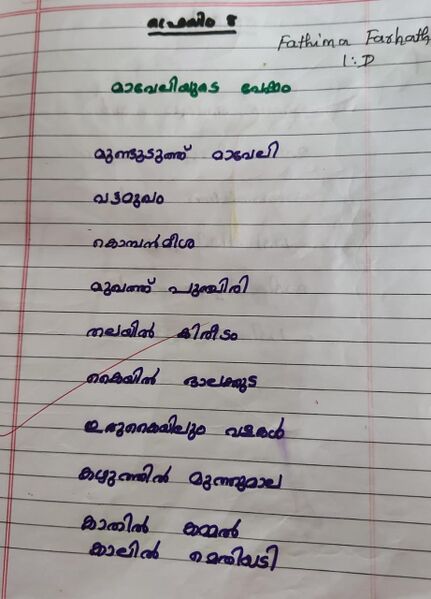 ഫ്രെയിം 8
Fathima Farhath
1:D
മാവേലിയുടെ വേഷം
മുണ്ടുടുത്ത് മാവേലി
വട്ടമുഖം
കൊമ്പൻമീശ
മുഖത്ത് പുഞ്ചിരി
തലയിൽ കിരീടം
കൈയിൽ ഓലക്കുട
ഇരുകൈയിലും വളകൾ
കഴുത്തിൽ മുത്തുമാല
കാതിൽ കമ്മൽ
കാലിൽ മെതിയടി